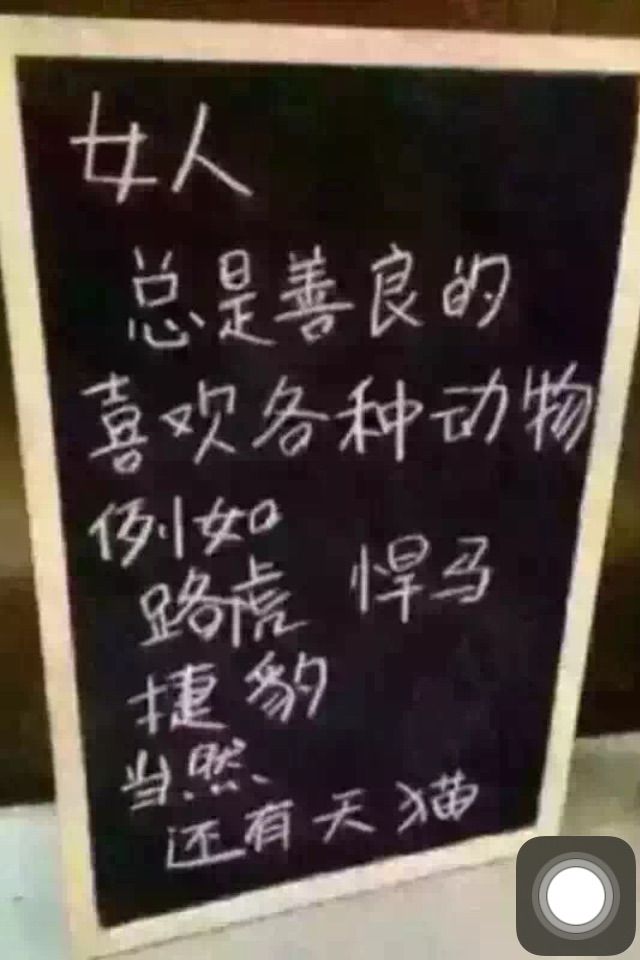 女人
总是善良的
喜欢各种动物
例如
路虎 悍马
捷豹
当然
还有天猫